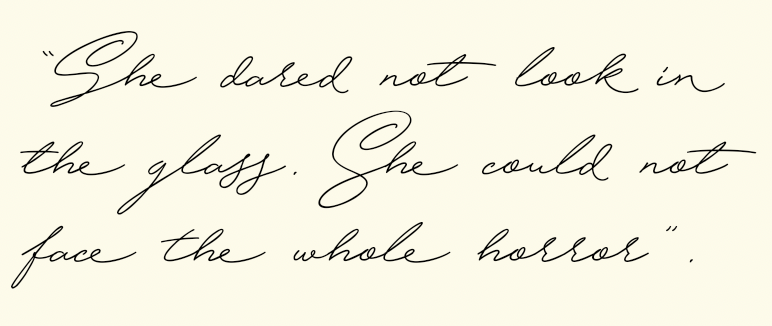 “She dared not look in
the glass. She could not
face the whole horror”.